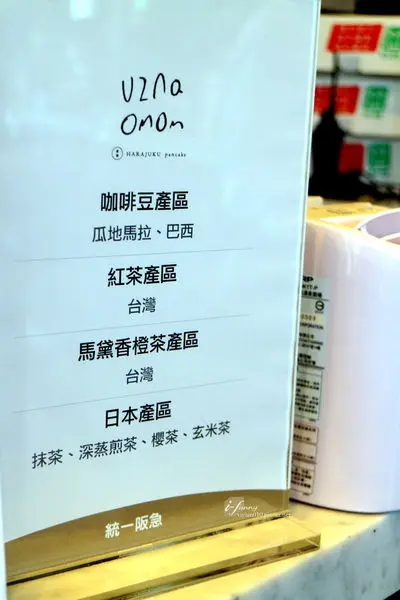 uzna
omom
HARAJUKU pancake
咖啡豆產區
瓜地馬拉、巴西
紅茶產區
台灣
馬黛香橙茶產區
台灣
日本產區
抹茶、深蒸煎茶、櫻茶、玄米茶
統一阪急
i-Funny